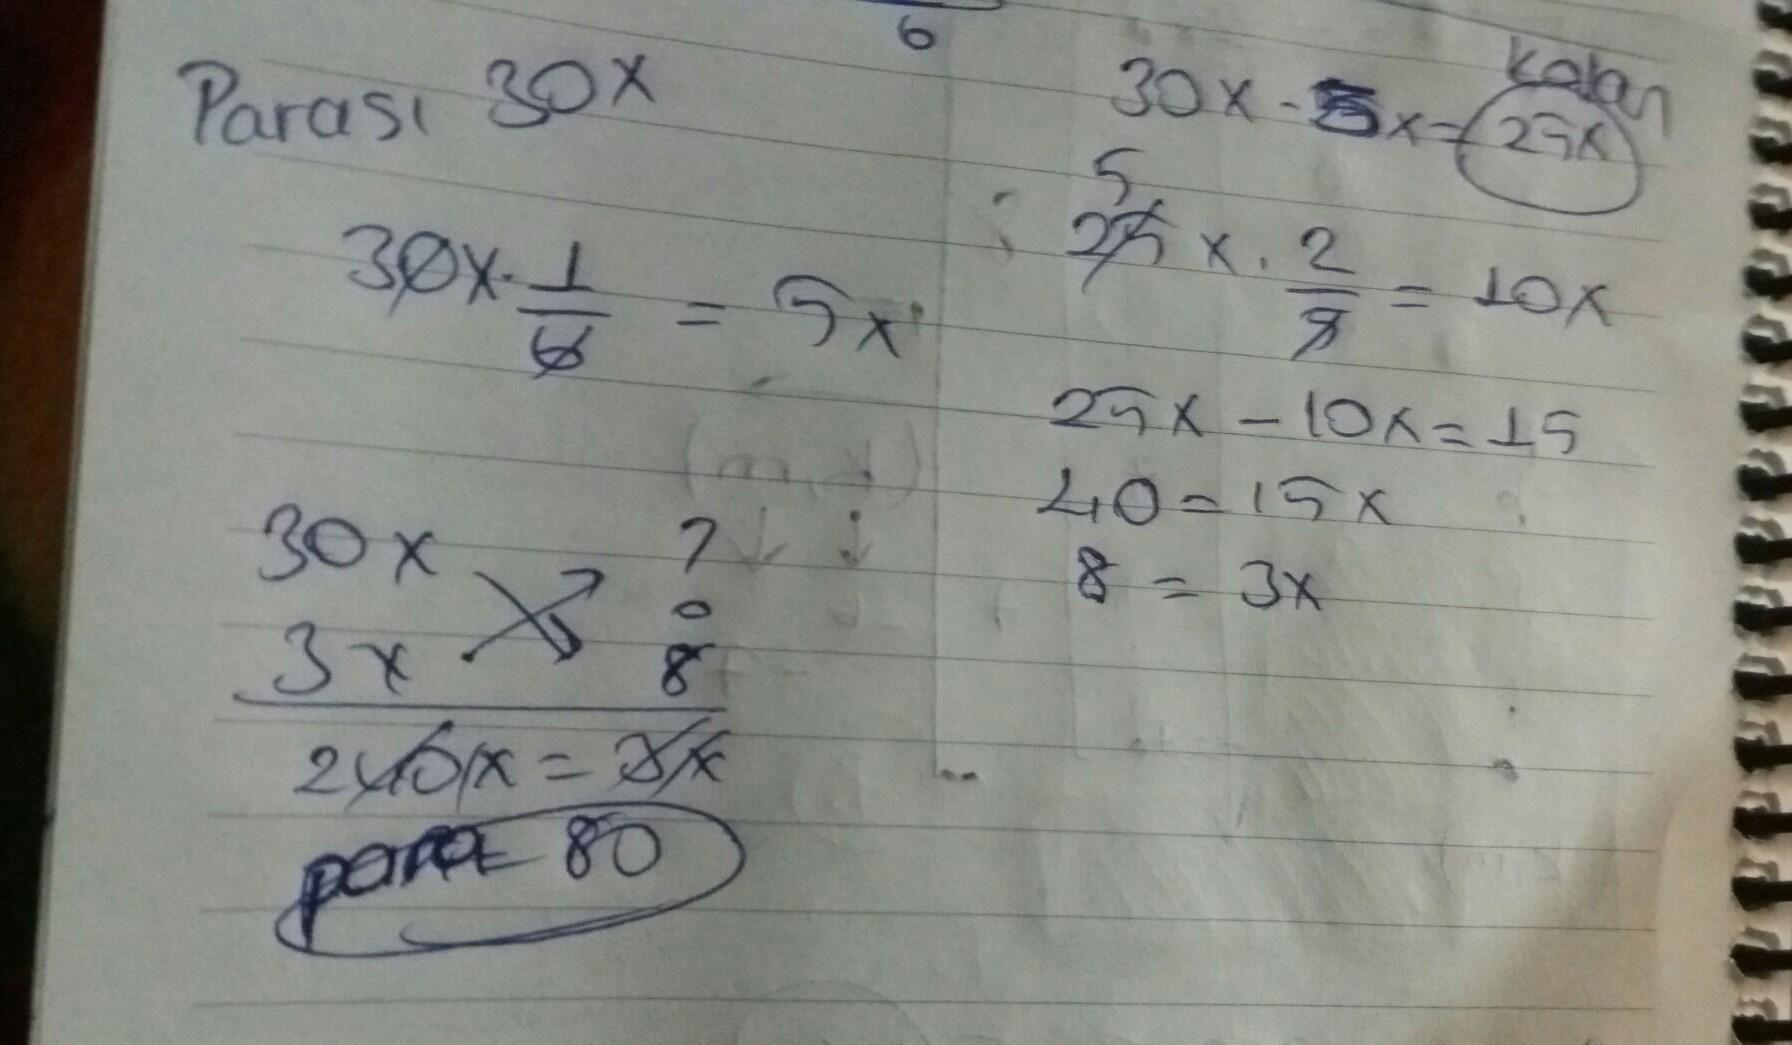 6
Parası 30x
30x · 1/6 = 5x
30x ?
3x 8
240x = 3x
para = 80
30x - 5x = 25x kalan
5
25x . 2/5 = 10x
25x - 10x = 15
40 = 15x
8 = 3x